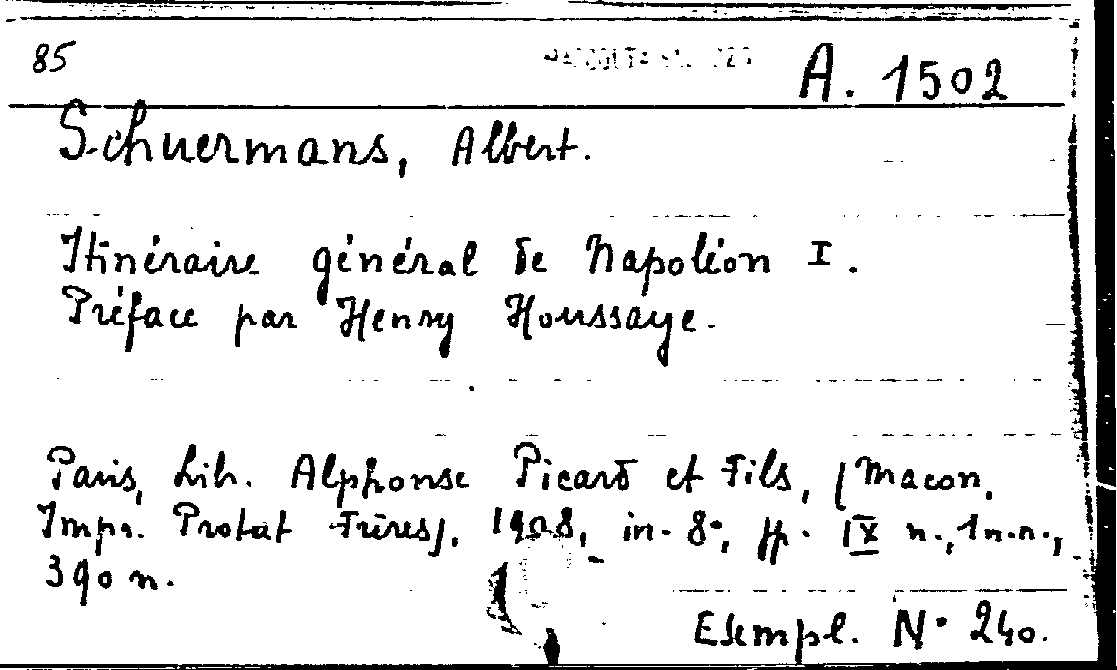 85
A. 1502
Schuermans, Albert.
Itinéraire général de Napoléon I.
Préface par Henry Houssaye.
Paris, Lib. Alphonse Picard et Fils, (Macon,
Impr. Protat Frères), 1908, in-8°, pp. IX n., 1 n.n.,
390 n.
Esempl. N° 240.